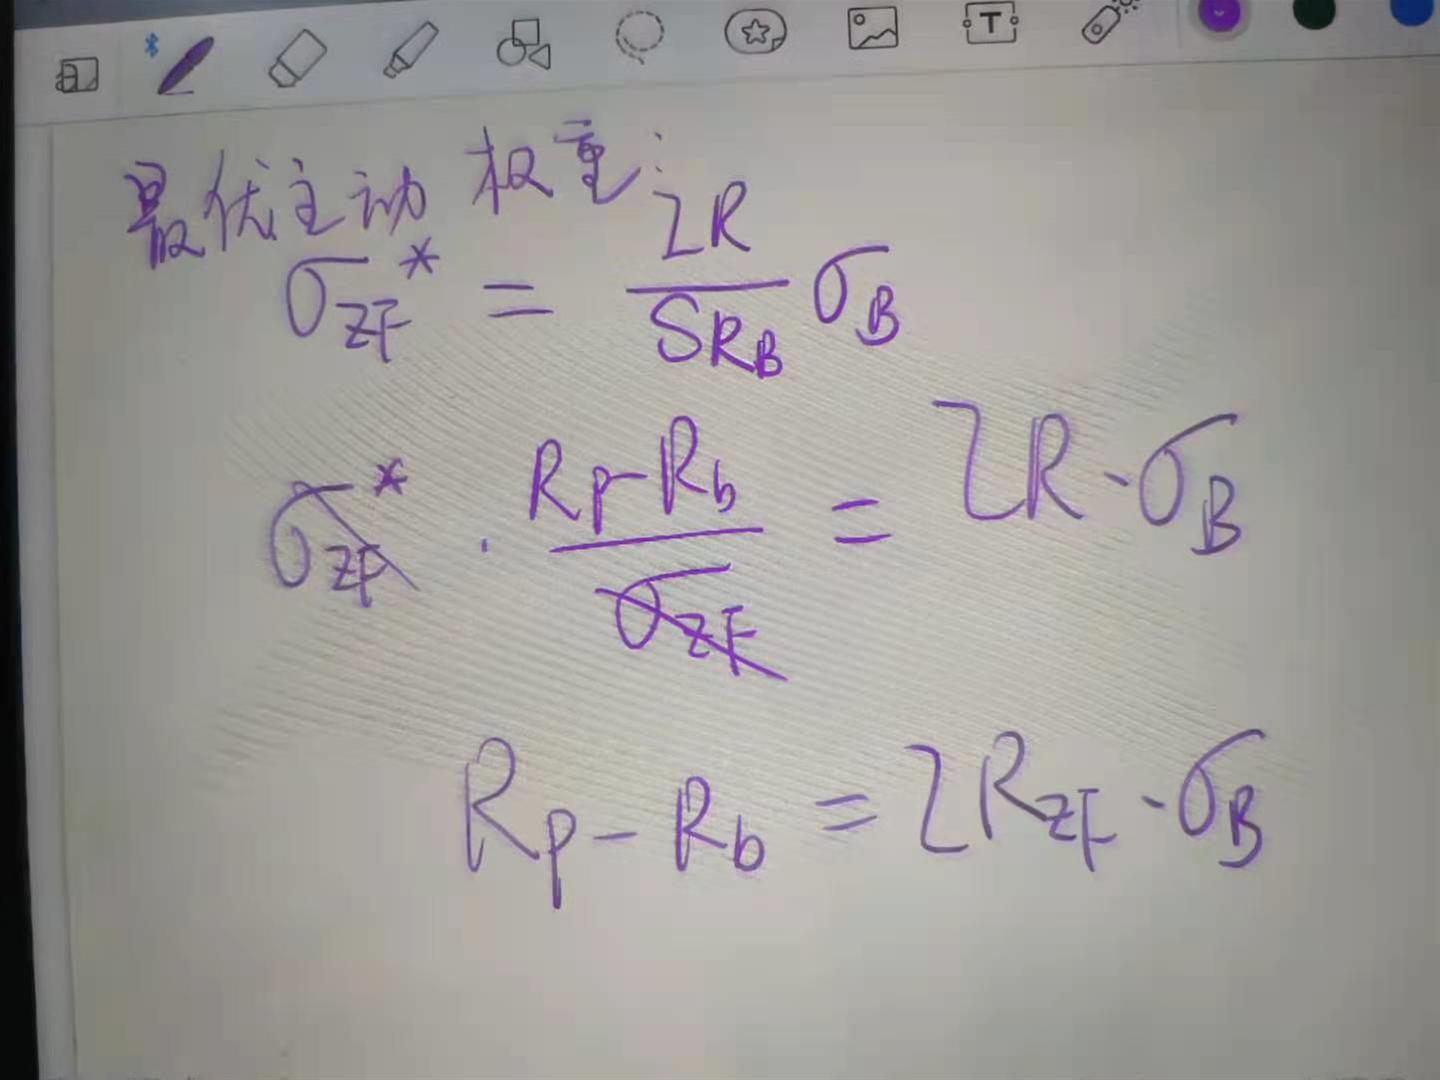 最优主动权重:
σ_ZF* = IR / SR_B σ_B
σ_ZF* · (R_p - R_b) / σ_ZF = IR · σ_B
R_p - R_b = IR_ZF · σ_B
T